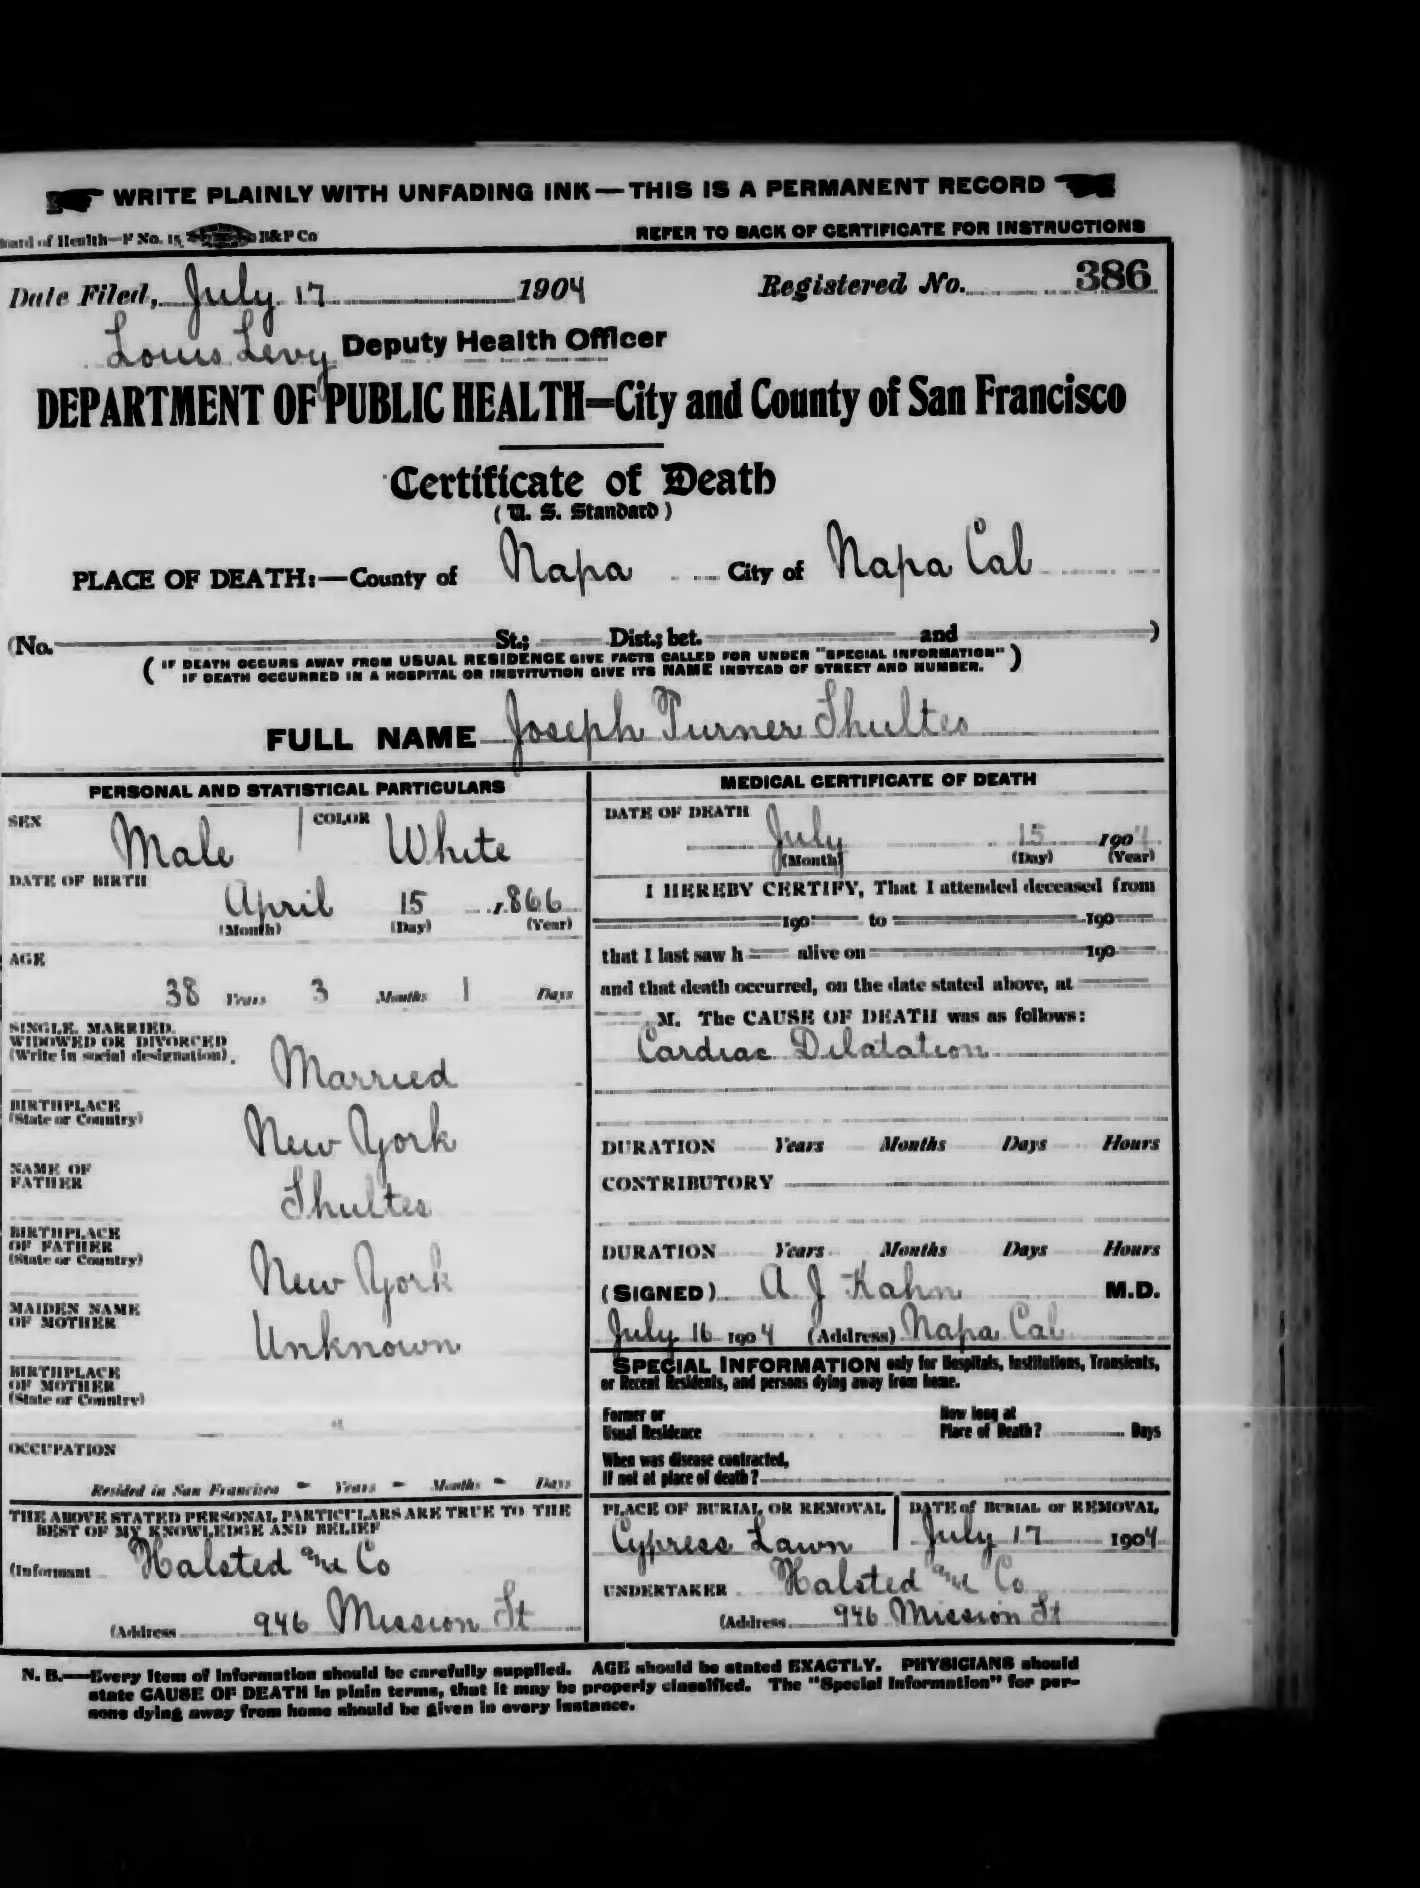 WRITE PLAINLY WITH UNFADING INK—THIS IS A PERMANENT RECORD
Board of Health—F No. 15 B&P Co
REFER TO BACK OF CERTIFICATE FOR INSTRUCTIONS
Date Filed, July 17 1904 Registered No. 386
Louis Levy Deputy Health Officer
DEPARTMENT OF PUBLIC HEALTH—City and County of San Francisco
Certificate of Death
(U. S. Standard)
PLACE OF DEATH:—County of Napa City of Napa Cal
(No. St.; Dist.; bet. and )
(IF DEATH OCCURS AWAY FROM USUAL RESIDENCE GIVE FACTS CALLED FOR UNDER "SPECIAL INFORMATION"
IF DEATH OCCURRED IN A HOSPITAL OR INSTITUTION GIVE ITS NAME INSTEAD OF STREET AND NUMBER.)
FULL NAME Joseph Turner Shultes
PERSONAL AND STATISTICAL PARTICULARS
SEX Male COLOR White
DATE OF BIRTH
April 15 1866
(Month) (Day) (Year)
AGE
38 Years 3 Months 1 Days
SINGLE, MARRIED,
WIDOWED OR DIVORCED
(Write in social designation)
Married
BIRTHPLACE
(State or Country)
New York
NAME OF
FATHER
Shultes
BIRTHPLACE
OF FATHER
(State or Country)
New York
MAIDEN NAME
OF MOTHER
Unknown
BIRTHPLACE
OF MOTHER
(State or Country)
OCCUPATION
Resided in San Francisco - Years - Months - Days
THE ABOVE STATED PERSONAL PARTICULARS ARE TRUE TO THE
BEST OF MY KNOWLEDGE AND BELIEF
(Informant Halsted and Co
(Address 946 Mission St
MEDICAL CERTIFICATE OF DEATH
DATE OF DEATH
July 15 1904
(Month) (Day) (Year)
I HEREBY CERTIFY, That I attended deceased from
190 to 190
that I last saw h alive on 190
and that death occurred, on the date stated above, at
M. The CAUSE OF DEATH was as follows:
Cardiac Dilatation
DURATION Years Months Days Hours
CONTRIBUTORY
DURATION Years Months Days Hours
(SIGNED) A J Kahn M.D.
July 16 1904 (Address) Napa Cal
SPECIAL INFORMATION only for Hospitals, Institutions, Transients,
or Recent Residents, and persons dying away from home.
Former or
Usual Residence
How long at
Place of Death? Days
When was disease contracted,
If not at place of death?
PLACE OF BURIAL OR REMOVAL
Cypress Lawn
DATE of BURIAL or REMOVAL
July 17 1904
UNDERTAKER Halsted and Co
(Address 946 Mission St
N. B.—Every item of information should be carefully supplied. AGE should be stated EXACTLY. PHYSICIANS should
state CAUSE OF DEATH in plain terms, that it may be properly classified. The "Special Information" for per-
sons dying away from home should be given in every instance.